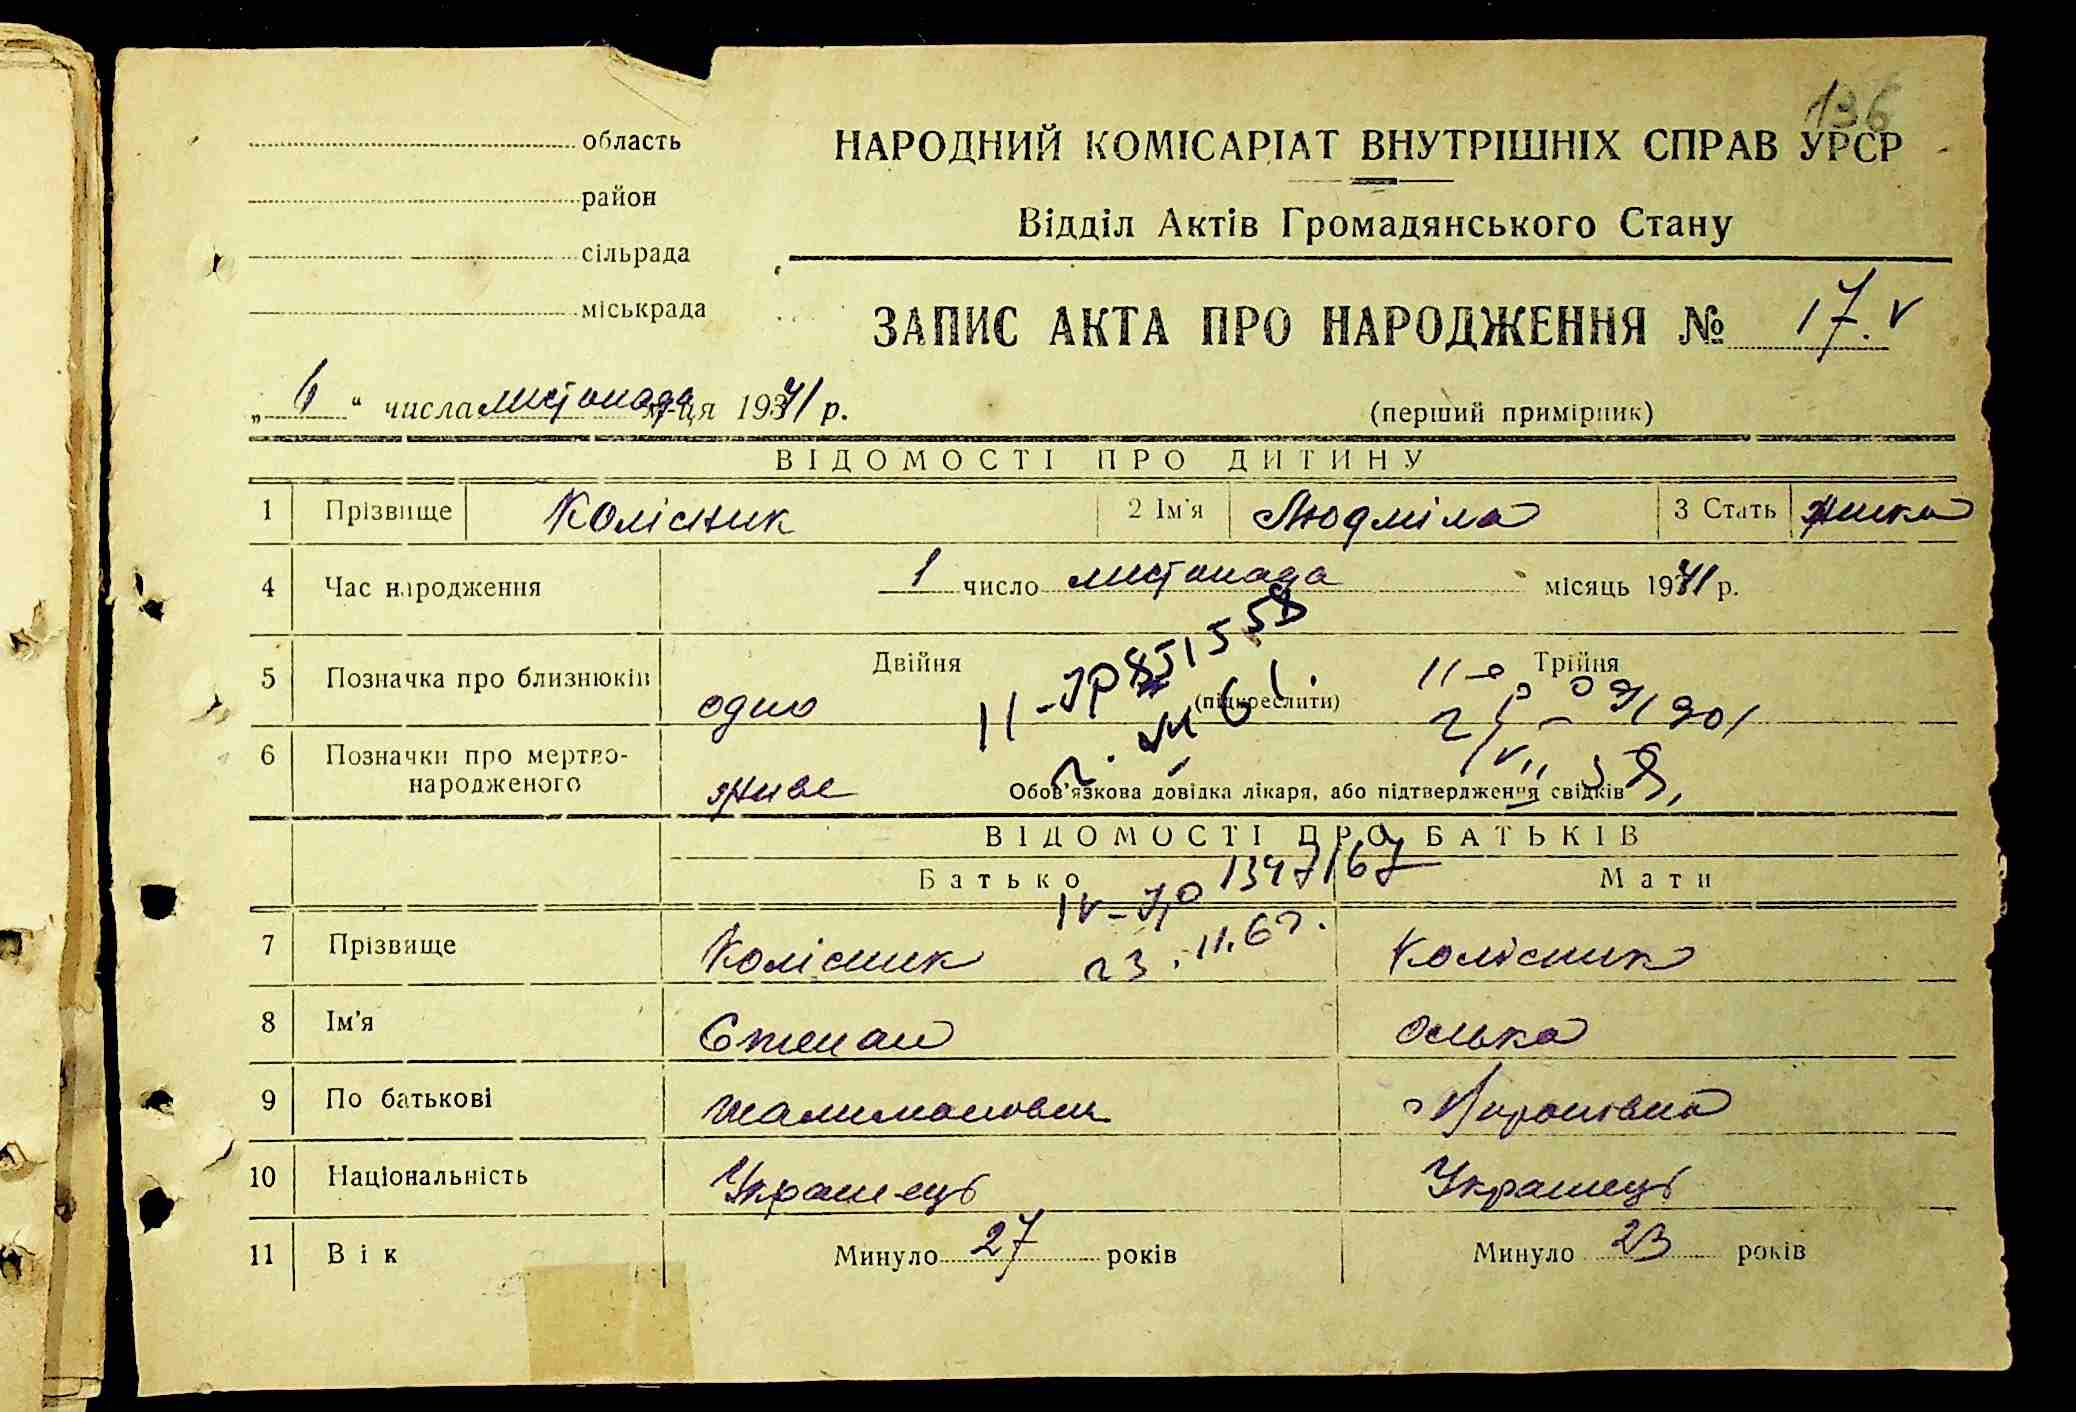 136
область
район
сільрада
міськрада
НАРОДНИЙ КОМІСАРІАТ ВНУТРІШНІХ СПРАВ УРСР
Відділ Актів Громадянського Стану
ЗАПИС АКТА ПРО НАРОДЖЕННЯ № 17. v
„ 6 “ числа листопада м-ця 1941 р.
(перший примірник)
ВІДОМОСТІ ПРО ДИТИНУ
1 Прізвище Колісник 2 Ім'я Людміла 3 Стать
4 Час народження 1 число листопада місяць 1941 р.
5 Позначка про близнюків одно Двійня (підкреслити) Трійня
6 Позначки про мертво-
народженого живе Обов'язкова довідка лікаря, або підтвердження свідків
ВІДОМОСТІ ПРО БАТЬКІВ
Батько Мати
1347/67
23.11.67.
7 Прізвище Колісник Колісник
8 Ім'я Степан Олька
9 По батькові
10 Національність Українець Українець
11 Вік Минуло 27 років Минуло 23 років